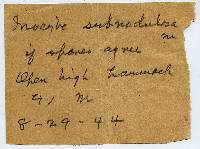 Inocybe subnodulosa
if spores agree
Open high hammock
M
8-29-44